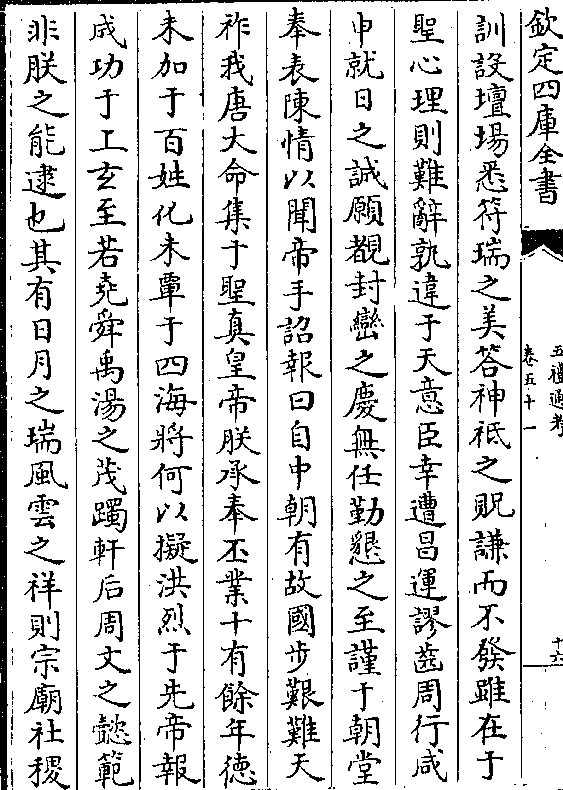 欽定四庫全書
五禮通考
卷五十一
十六
訓設壇場悉符瑞之美答神祇之貺謙而不發雖在于
聖心理則難辭孰違于天意臣幸遭昌運謬蒞周行咸
申就日之誠願覩封巒之慶無任勤懇之至謹于朝堂
奉表陳情以聞帝手詔報曰自中朝有故國步艱難天
祚我唐大命集于聖真皇帝朕承奉丕業十有餘年德
未加于百姓化未覃于四海將何以擬洪烈于先帝報
成功于上玄至若堯舜禹湯之茂躅軒后周文之懿範
非朕之能逮也其有日月之瑞風雲之祥則宗廟社稷